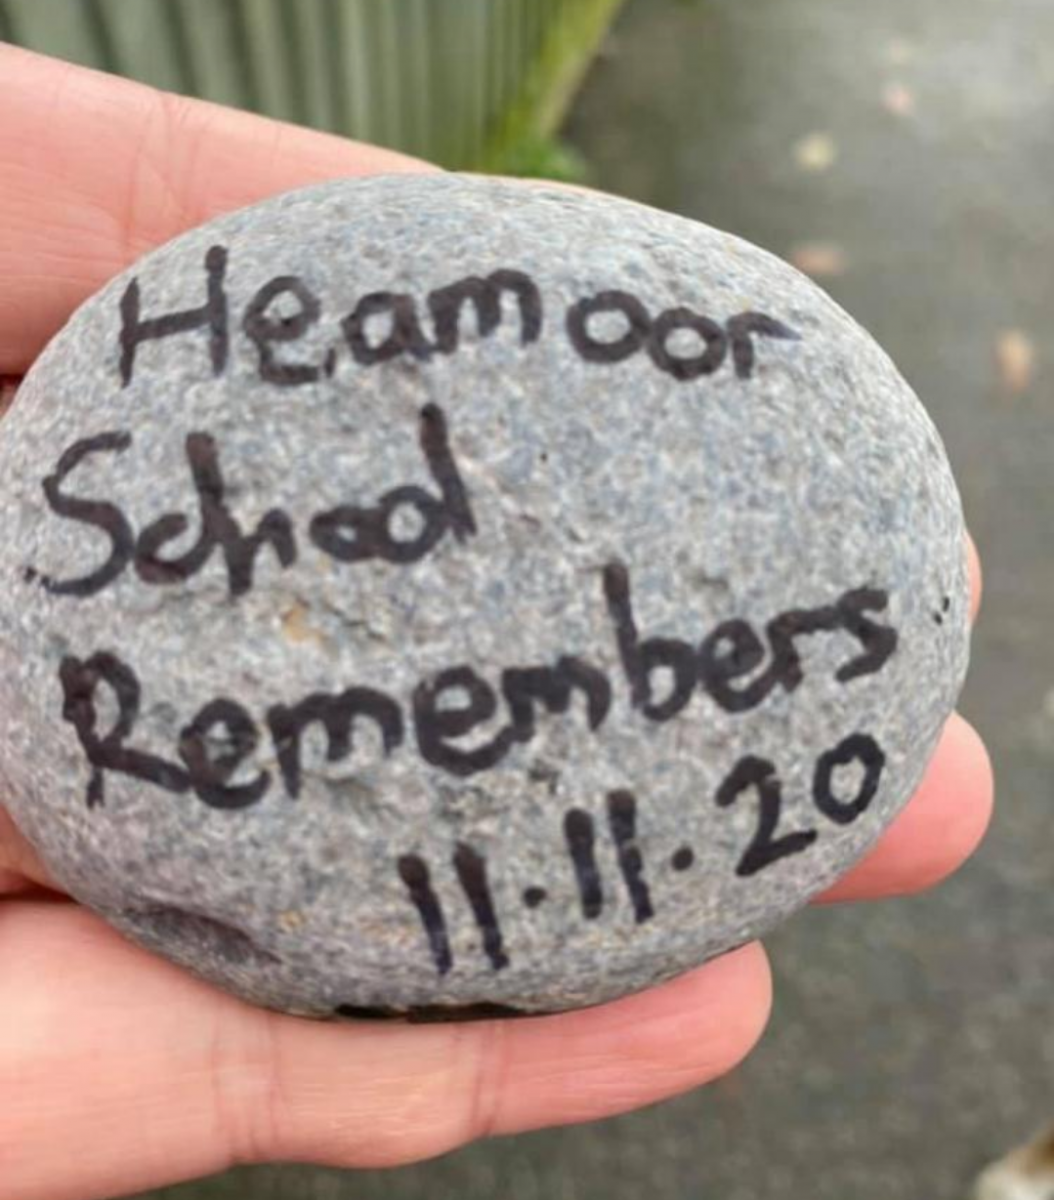 Heamoor
School
Remembers
11.11.20